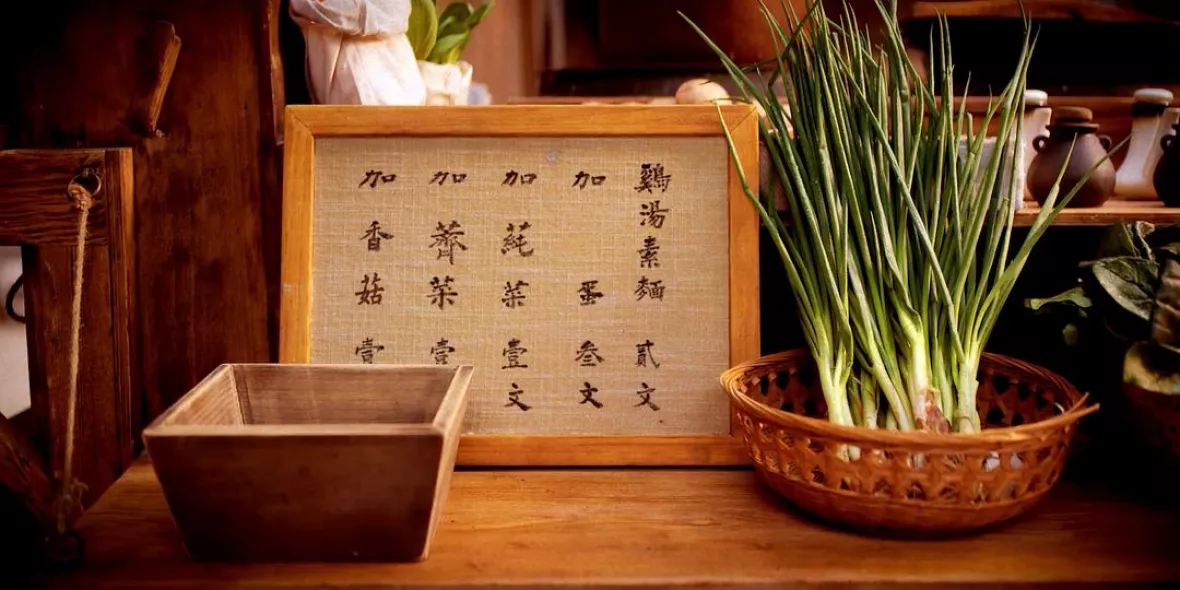 鷄湯素麵 貳文
加 蛋叁文
加蒓菜壹文
加薺菜壹
加香菇壹